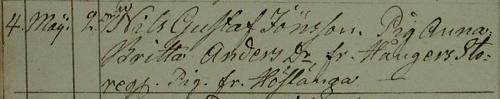 4. Maji. 2. Nils Gustaf Jönsson. Pig. Anna
Britta Anders Dr fr. Haugers Sto-
regg. Pig. fr. Höslänga